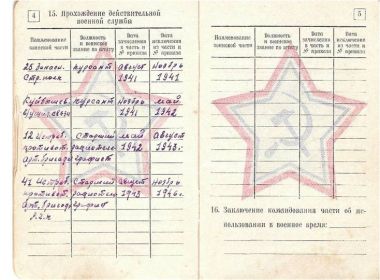 4
15. Прохождение действительной
военной службы
Наименование воинской части
Должность и воинское звание по штату
Дата зачисления в часть и № приказа
Дата исключения из части и № приказа
25 Запасн. курсант август ноябрь
Стр. полк 1941 1941
курсант ноябрь май
1941 1942
12 Истреб. Старший май август
противот. 1942 1943 г.
арт. бригады
41 Истреб. Старший август ноябрь
противот. 1943 1946 г.
арт. бригады
5
Наименование воинской части
Должность и воинское звание по штату
Дата зачисления в часть и № приказа
Дата исключения из части и № приказа
16. Заключение командования части об ис-
пользовании в военное время: